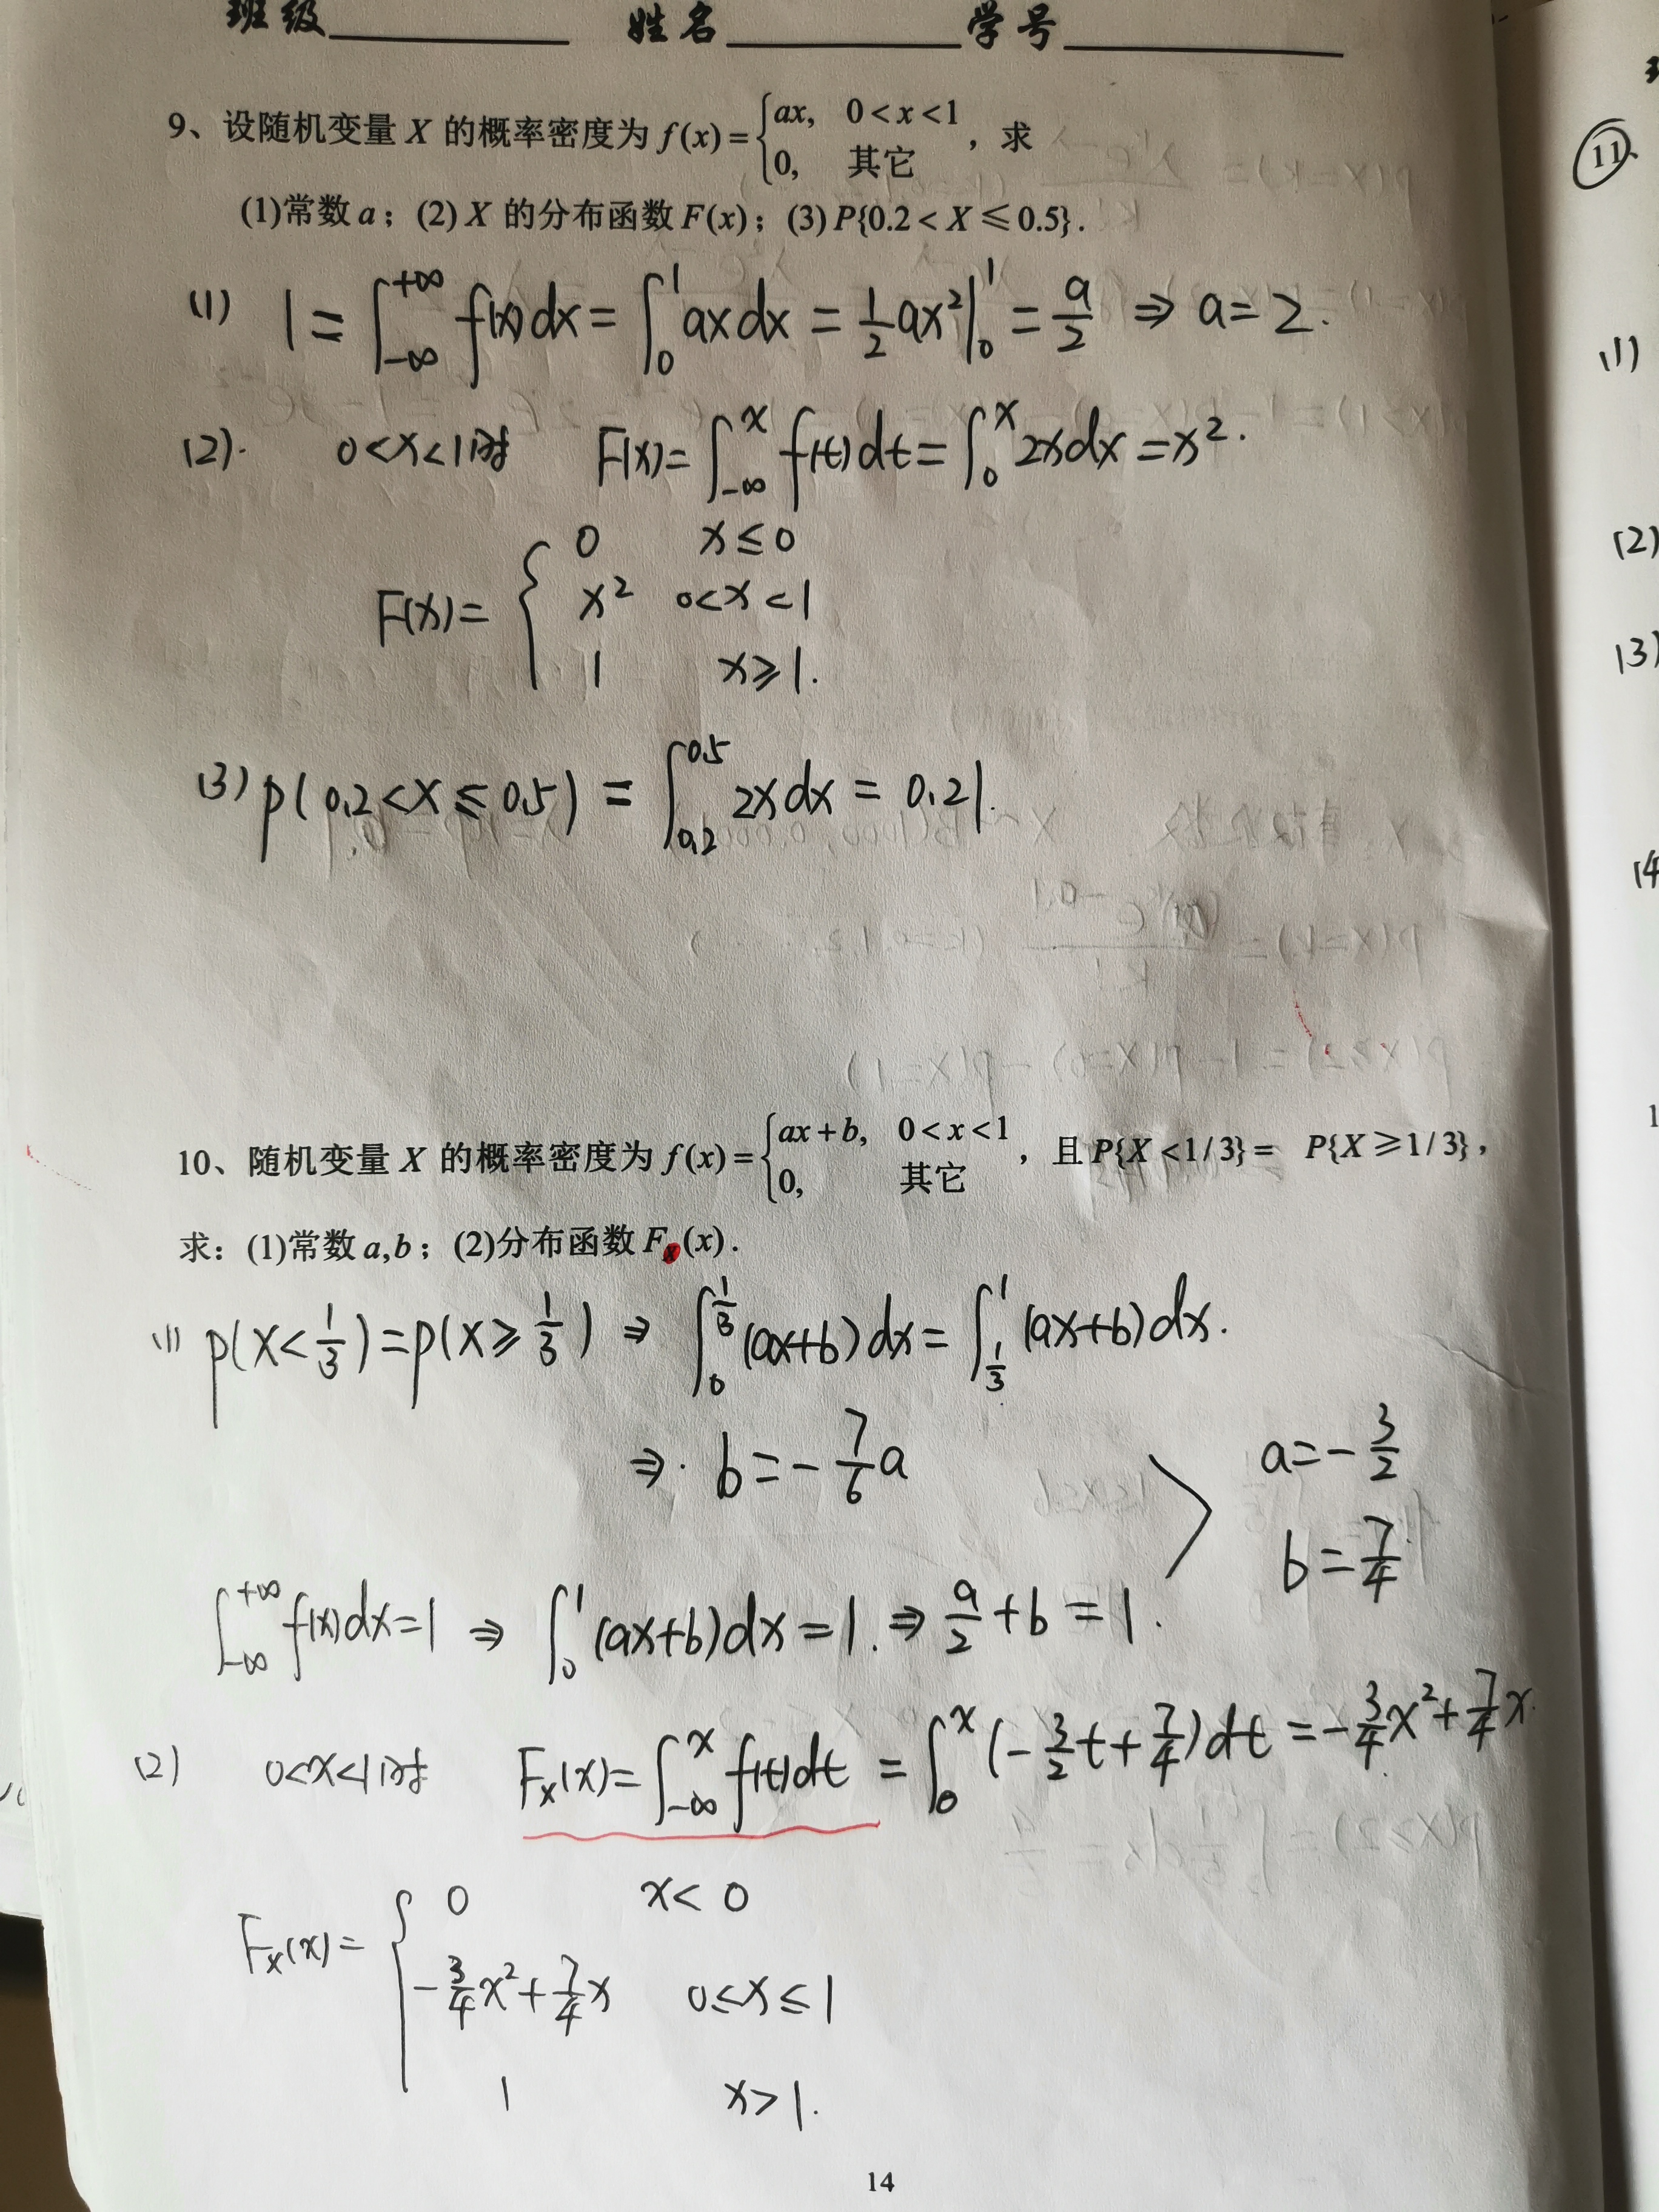 班级 姓名 学号
9、设随机变量 X 的概率密度为 f(x)={ax, 0<x<1
0, 其它 ，求
(1)常数 a；(2) X 的分布函数 F(x)；(3) P{0.2<X≤0.5}.
(1) 1=∫_{-∞}^{+∞} f(x)dx=∫_0^1 axdx=1/2 ax²|_0^1=a/2 ⇒ a=2.
(2). 0<x<1时 F(x)=∫_{-∞}^x f(t)dt=∫_0^x 2xdx=x².
F(x)={0 x≤0
x² 0<x<1
1 x≥1.
(3) P(0.2<X≤0.5)=∫_{0.2}^{0.5} 2xdx=0.21.
10、随机变量 X 的概率密度为 f(x)={ax+b, 0<x<1
0, 其它 ，且 P{X<1/3}= P{X≥1/3}，
求：(1)常数 a,b；(2)分布函数 F_X(x).
(1) P(X<1/3)=P(X≥1/3) ⇒ ∫_0^{1/3}(ax+b)dx=∫_{1/3}^1(ax+b)dx.
⇒. b=-7/6 a
a=-3/2
b=7/4
∫_{-∞}^{+∞} f(x)dx=1 ⇒ ∫_0^1(ax+b)dx=1. ⇒ a/2+b=1.
(2) 0<x<1时 F_X(x)=∫_{-∞}^x f(t)dt=∫_0^x(-3/2 t+7/4)dt=-3/4 x²+7/4 x.
F_X(x)={0 x<0
-3/4 x²+7/4 x 0≤x≤1
1 x>1.
14
11、
(1)
(2)
(3)
(4